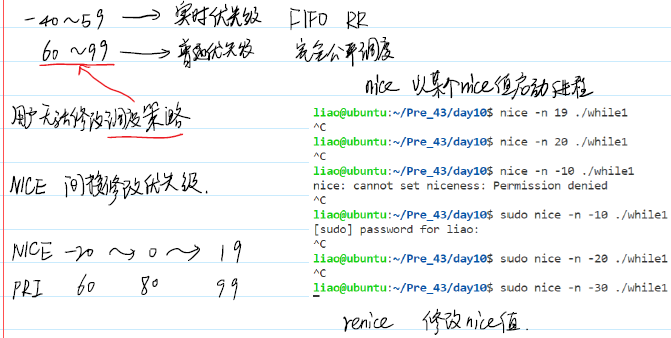 -40~59 → 实时优先级 FIFO RR
60~99 → 普通优先级 完全公平调度
用户无法修改调度策略
NICE 间接修改优先级.
NICE -20 ~> 0 ~> 19
PRI 60 80 99
nice 以某个nice值启动进程
liao@ubuntu:~/Pre_43/day10$ nice -n 19 ./while1
^C
liao@ubuntu:~/Pre_43/day10$ nice -n 20 ./while1
^C
liao@ubuntu:~/Pre_43/day10$ nice -n -10 ./while1
nice: cannot set niceness: Permission denied
^C
liao@ubuntu:~/Pre_43/day10$ sudo nice -n -10 ./while1
[sudo] password for liao:
^C
liao@ubuntu:~/Pre_43/day10$ sudo nice -n -20 ./while1
^C
liao@ubuntu:~/Pre_43/day10$ sudo nice -n -30 ./while1
renice 修改nice值.